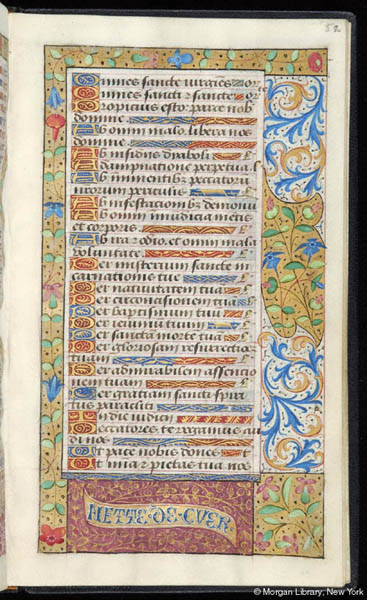 52
Omnes sancte virgines or
Omnes sancti & sancte or
Propicius esto parce nob
domine
Ab omni malo libera nos
domine
Ab insidiis dyaboli l
A dampnatione perpetua l
Ab iminentibz peccatorū
nrorum periculis
Ab infestacioibz demonū
Ab omni inmūdicia mētis
et corporis
Ab ira & odio et omni mala
voluntate
Per misterium sancte in
carnationis tue
Per natiuitatem tuā l
Per circūcisionem tuā l
Per baptismum tuū l
Per ieiuniū tuum l
Per sanctā morte tuā l
Per gloriosam resurrectionē
tuam
Per admirabilem assencio
nem tuam
Per gratiam sancti spiri
tus paracliti
In die iudicii
Peccatores te rogamus au
di nos
Ut pacē nobis dones t
Ut mia & pietas tua nos
METTE·OS·CVER
© Morgan Library, New York